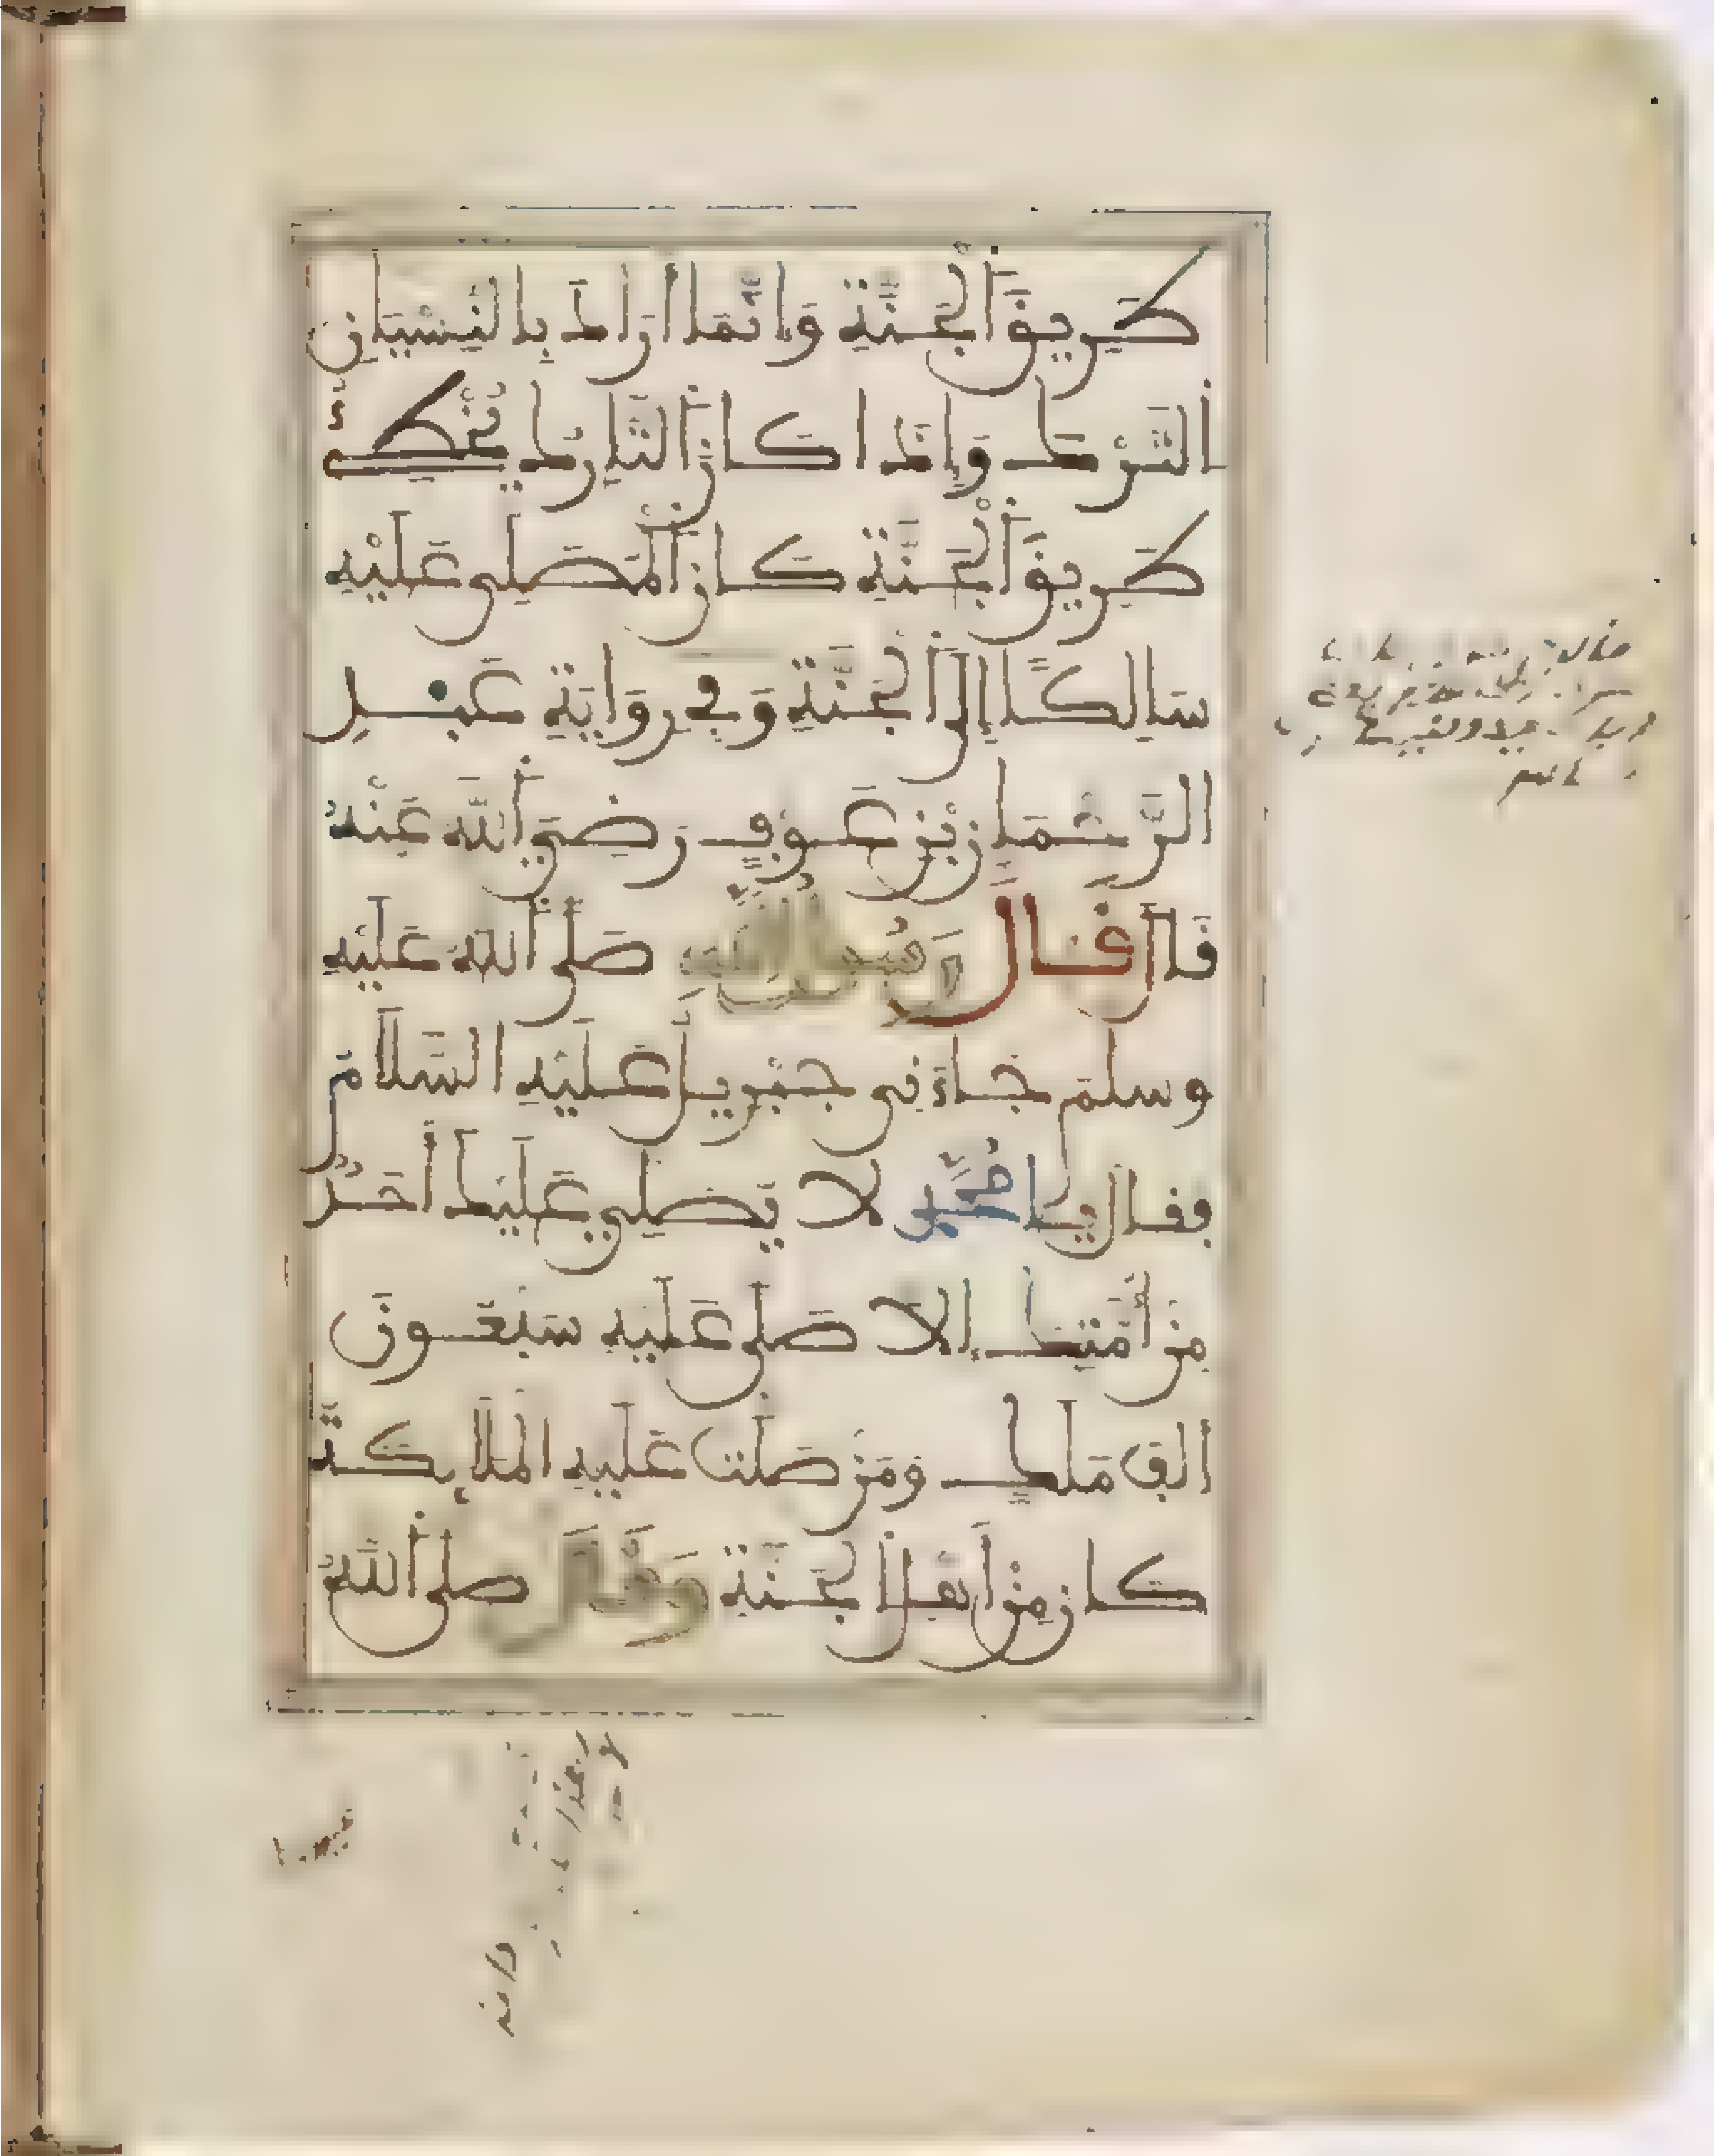 طَرِيقَ ٱلْجَنَّةِ وَإِنَّمَا أَرَادَ بِالنِّسْيَانِ
التَّرْكَ وَإِذَا كَانَ التَّارِكُ يُخْطِئُ
طَرِيقَ ٱلْجَنَّةِ كَانَ ٱلْمُصَلِّى عَلَيْهِ
سَالِكًا إِلَى ٱلْجَنَّةِ وَفِى رِوَايَةِ عَبْدِ
الرَّحْمَانِ بْنِ عَوْفٍ رَضِىَ ٱللَّهُ عَنْهُ
قَالَ قَالَ رَسُولُ اللَّهِ صَلَّى ٱللَّهُ عَلَيْهِ
وسلم جَاءَنِى جِبْرِيلُ عَلَيْهِ السَّلَامُ
فقال يَا مُحَمَّدُ لا يُصَلِّى عَلَيْكَ أَحَدٌ
مِنْ أُمَّتِكَ إِلاَّ صَلَّى عَلَيْهِ سَبْعُونَ
الف مَلَكٍ وَمَنْ صَلَّتْ عَلَيْهِ الْمَلَايِكَةُ
كَانَ مِنْ أَهْلِ ٱلْجَنَّةِ وَقَالَ صلى ٱللَّهُ